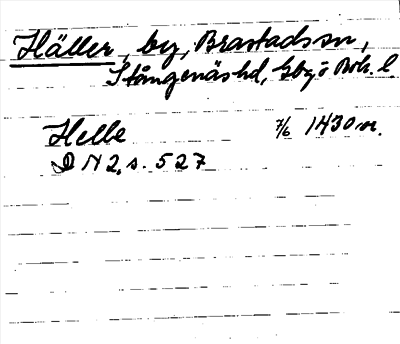 Häller, by, Brastads sn,
Stångenäs hd, Gbg o Boh. l.
Helle 7/6 1430 or.
D N 2, s. 527